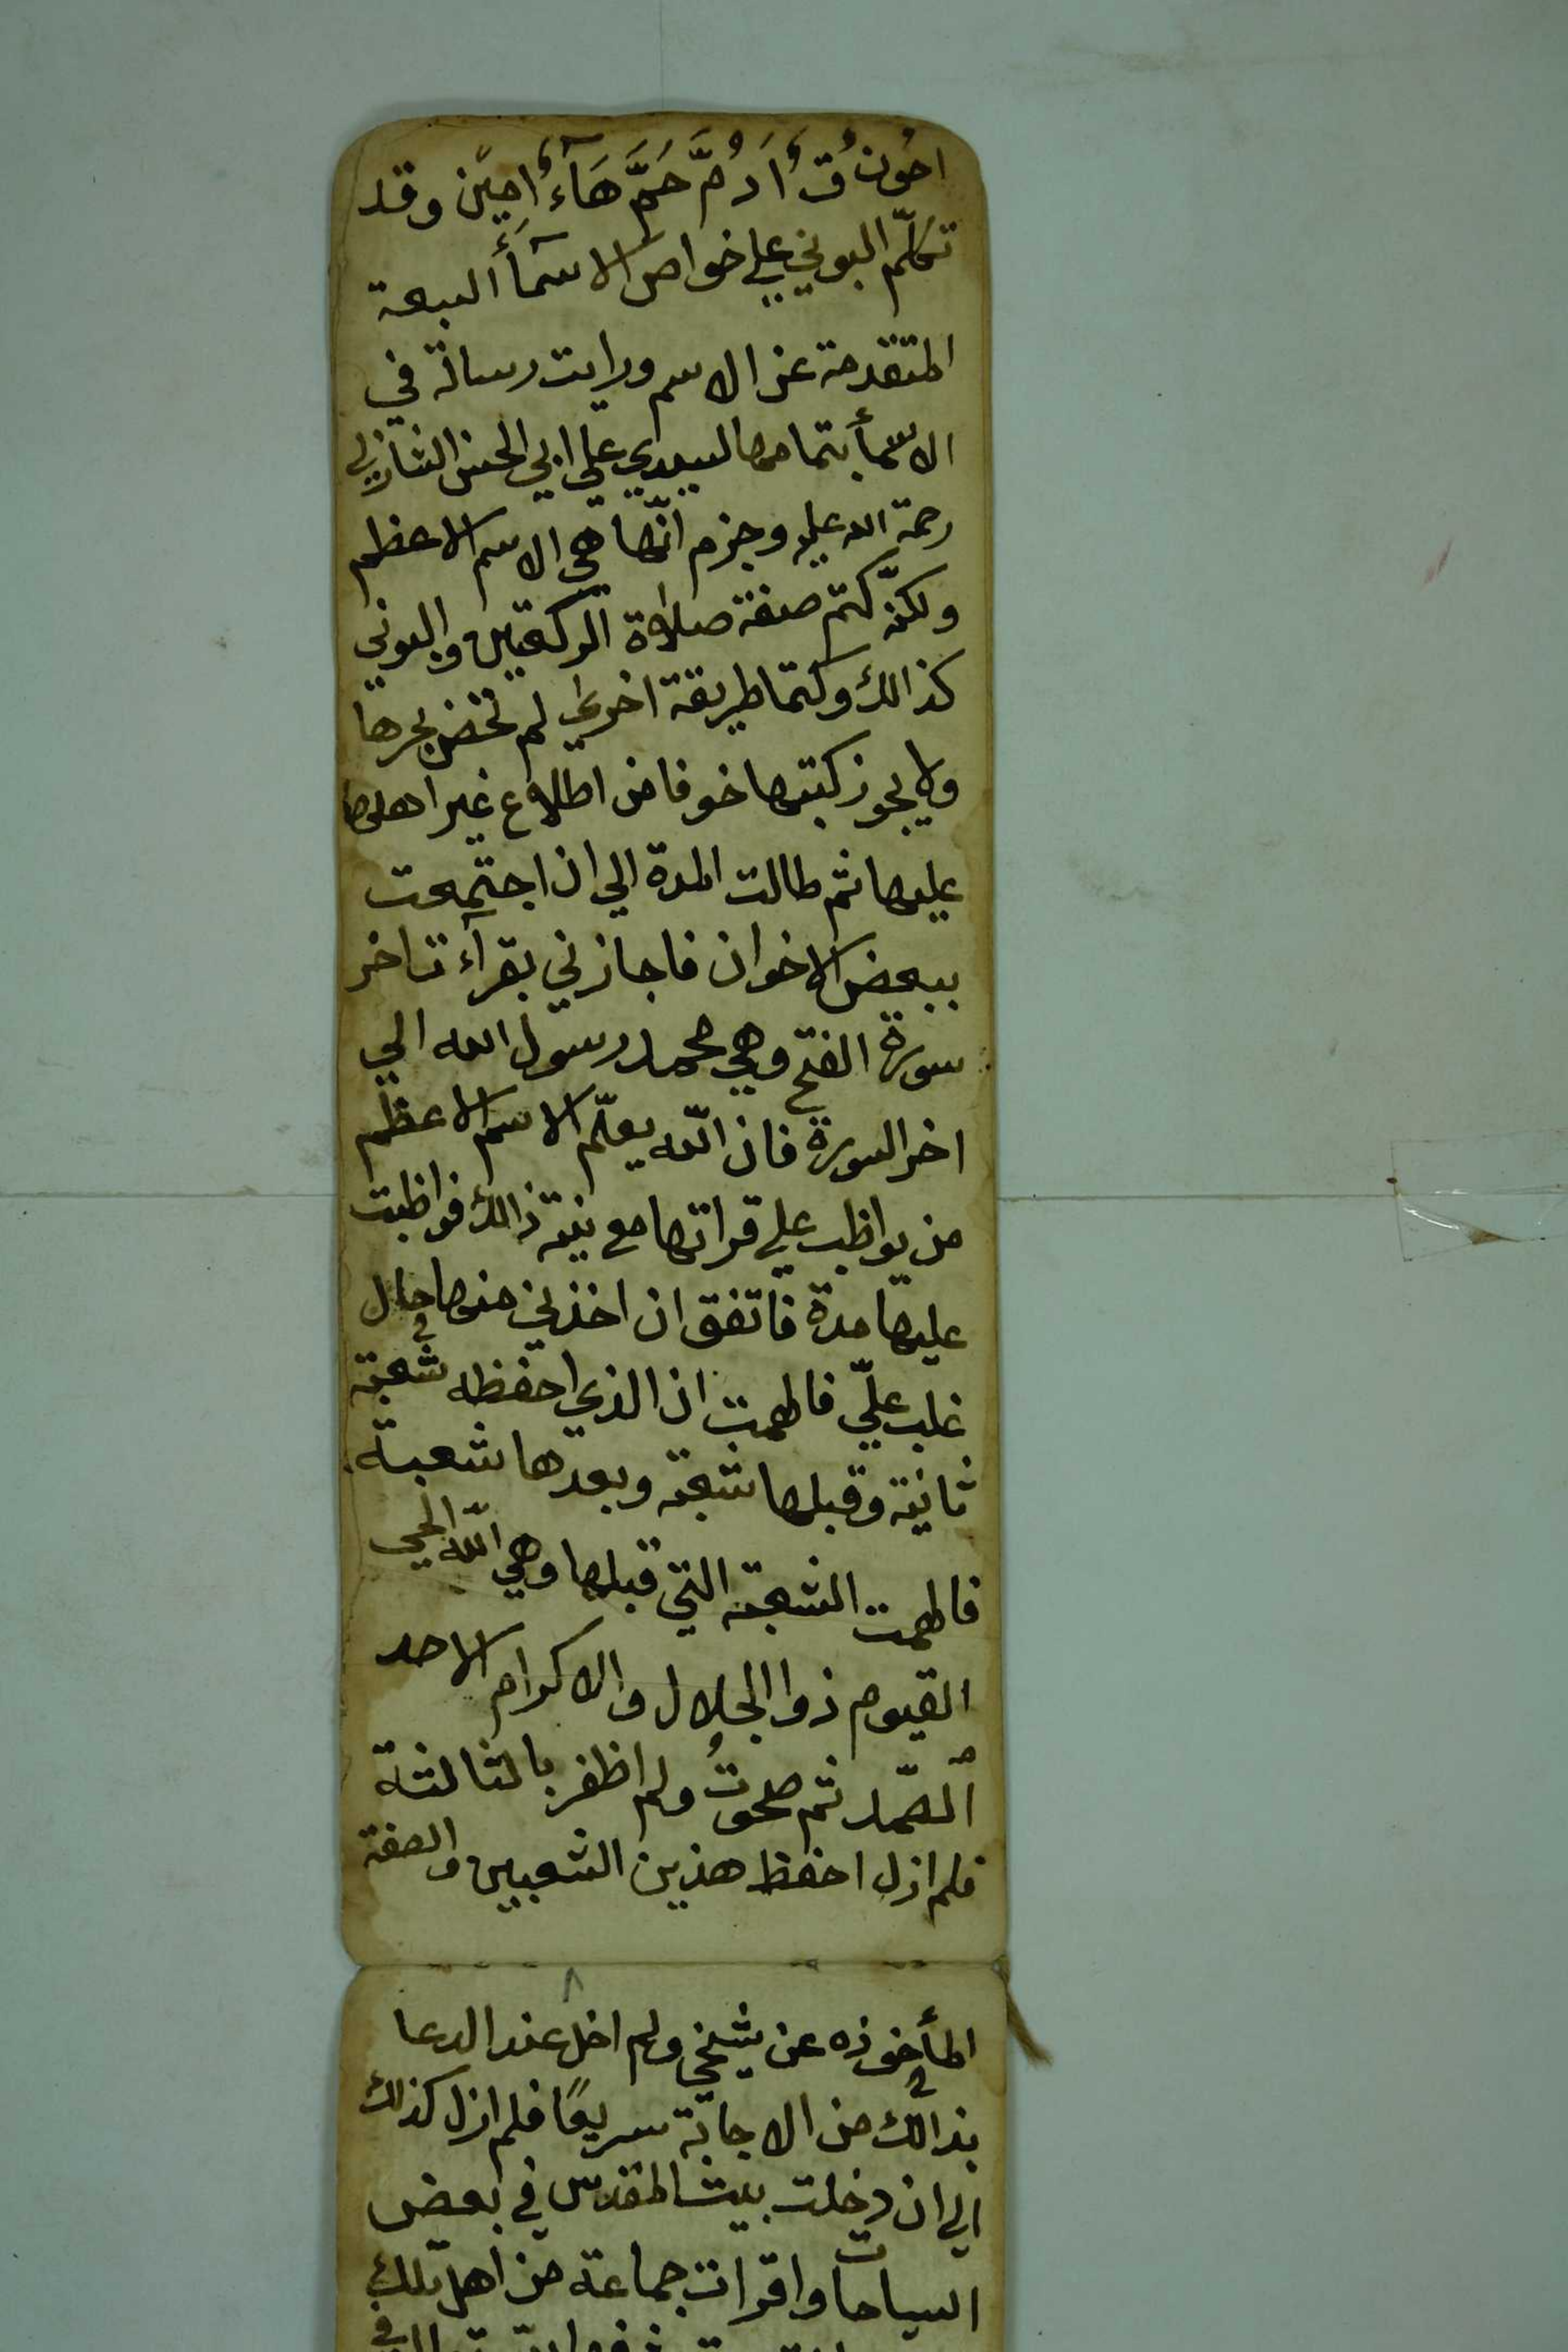 احون ق ادم حم هاء امين وقد
تكلم البوني علي خواص الاسمأ السبعة
المتقدمة عن الاسم ورايت رسالة في
الاسمأ بتمامها لسيدي علي ابي الحسن الشازلي
رحمة الله عليه وجزم انها هي الاسم الاعظم
ولكنه كتم صفة صلاة الركعتين والبوني
كذالك وكتما طريقة اخري لم نخض بحرها
ولا يجوز كبتها خوفا من اطلاع غير اهلها
عليها ثم طالت المدة الي ان اجتمعت
ببعض الاخوان فاجازني بقرآءة اخر
سورة الفتح وهي محمد رسول الله الي
اخر السورة فان الله يعلّم الاسم الاعظم
من يواظب علي قراتها مع نية ذالك فواظبت
عليها مدة فاتفق ان اخذني منها حال
غلب عليّ فالهمت ان الذي احفظه شعبة
ثانية وقبلها شعبة وبعدها شعبة
فالهمت الشعبة التي قبلها وهي اللّه الحي
القيوم ذوا الجلال والاكرام الاحد
الصّمد ثم صحوتُ ولم اظفر بالثالثة
فلم ازل احفظ هذين الشعبيين والصفة
المأخوذه عن شيخي ولم اخل عند الدعا
بذالك من الاجابة سريعًا فلم ازل كذالك
الي ان دخلت بيت المقدس في بعض
السياحات واقرات جماعة من اهل تلك